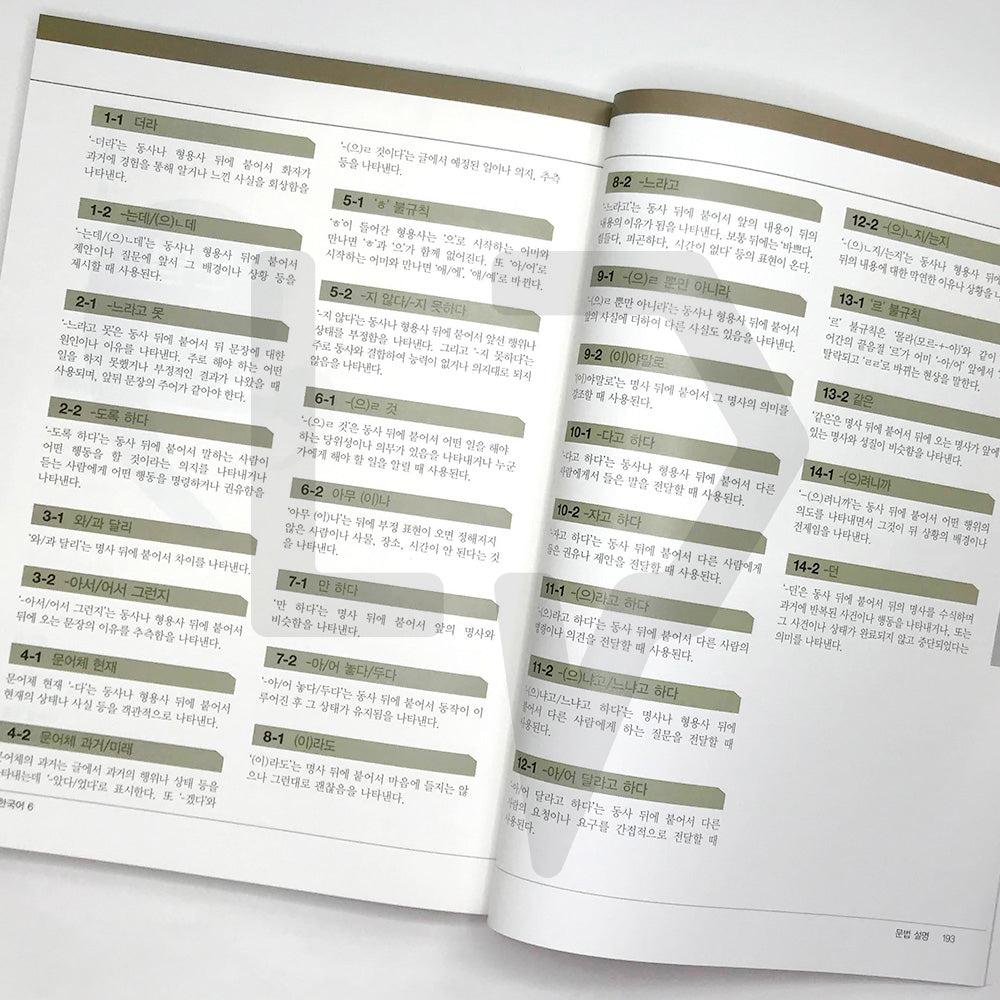 1-1 더라
'-더라'는 동사나 형용사 뒤에 붙어서 화자가
과거에 경험을 통해 알거나 느낀 사실을 회상함을
나타낸다.
1-2 -는데/(으)ㄴ데
'-는데/(으)ㄴ데'는 동사나 형용사 뒤에 붙어서
제안이나 질문에 앞서 그 배경이나 상황 등을
제시할 때 사용된다.
2-1 -느라고 못
'-느라고 못'은 동사 뒤에 붙어서 뒤 문장에 대한
원인이나 이유를 나타낸다. 주로 해야 하는 어떤
일을 하지 못했거나 부정적인 결과가 나왔을 때
사용되며, 앞뒤 문장의 주어가 같아야 한다.
2-2 -도록 하다
'-도록 하다'는 동사 뒤에 붙어서 말하는 사람이
어떤 행동을 할 것이라는 의지를 나타내거나
듣는 사람에게 어떤 행동을 명령하거나 권유함을
나타낸다.
3-1 와/과 달리
'와/과 달리'는 명사 뒤에 붙어서 차이를 나타낸다.
3-2 -아서/어서 그런지
'-아서/어서 그런지'는 동사나 형용사 뒤에 붙어서
뒤에 오는 문장의 이유를 추측함을 나타낸다.
4-1 문어체 현재
문어체 현재 '-다'는 동사나 형용사 뒤에 붙어서
현재의 상태나 사실 등을 객관적으로 나타낸다.
4-2 문어체 과거/미래
문어체의 과거는 글에서 과거의 행위나 상태 등을
나타내는데 '-았다/었다'로 표시한다. 또 '-겠다'와
한국어 6
'-(으)ㄹ 것이다'는 글에서 예정된 일이나 의지, 추측
등을 나타낸다.
5-1 'ㅎ' 불규칙
'ㅎ'이 들어간 형용사는 '으'로 시작하는 어미와
만나면 'ㅎ'과 '으'가 함께 없어진다. 또 '아/어'로
시작하는 어미와 만나면 '애/에', '얘/예'로 바뀐다.
5-2 -지 않다/-지 못하다
'-지 않다'는 동사나 형용사 뒤에 붙어서 앞선 행위나
상태를 부정함을 나타낸다. 그리고 '-지 못하다'는
주로 동사와 결합하여 능력이 없거나 의지대로 되지
않음을 나타낸다.
6-1 -(으)ㄹ 것
'-(으)ㄹ 것'은 동사 뒤에 붙어서 어떤 일을 해야
하는 당위성이나 의무가 있음을 나타내거나 누군
가에게 해야 할 일을 알릴 때 사용된다.
6-2 아무 (이)나
'아무 (이)나'는 뒤에 부정 표현이 오면 정해지지
않은 사람이나 사물, 장소, 시간이 안 된다는 것
을 나타낸다.
7-1 만 하다
'만 하다'는 명사 뒤에 붙어서 앞의 명사와
비슷함을 나타낸다.
7-2 -아/어 놓다/두다
'-아/어 놓다/두다'는 동사 뒤에 붙어서 동작이 이
루어진 후 그 상태가 유지됨을 나타낸다.
8-1 (이)라도
'(이)라도'는 명사 뒤에 붙어서 마음에 들지는 않
으나 그런대로 괜찮음을 나타낸다.
8-2 -느라고
'-느라고'는 동사 뒤에 붙어서 앞의 내용이 뒤의
내용의 이유가 됨을 나타낸다. 보통 뒤에는 '바쁘다,
힘들다, 피곤하다, 시간이 없다' 등의 표현이 온다.
9-1 -(으)ㄹ 뿐만 아니라
'-(으)ㄹ 뿐만 아니라'는 동사나 형용사 뒤에 붙어서
앞의 사실에 더하여 다른 사실도 있음을 나타낸다.
9-2 (이)야말로
'(이)야말로'는 명사 뒤에 붙어서 그 명사의 의미를
강조할 때 사용된다.
10-1 -다고 하다
'-다고 하다'는 동사나 형용사 뒤에 붙어서 다른
사람에게서 들은 말을 전달할 때 사용된다.
10-2 -자고 하다
'-자고 하다'는 동사 뒤에 붙어서 다른 사람에게
들은 권유나 제안을 전달할 때 사용된다.
11-1 -(으)라고 하다
'-(으)라고 하다'는 동사 뒤에 붙어서 다른 사람의
명령이나 의견을 전달할 때 사용된다.
11-2 -(으)냐고/느냐고 하다
'-(으)냐고/느냐고 하다'는 명사나 형용사 뒤에
붙어서 다른 사람에게 하는 질문을 전달할 때
사용된다.
12-1 -아/어 달라고 하다
'-아/어 달라고 하다'는 동사 뒤에 붙어서 다른
사람의 요청이나 요구를 간접적으로 전달할 때
사용된다.
12-2 -(으)ㄴ지/는지
'-(으)ㄴ지/는지'는 동사나 형용사 뒤에
뒤의 내용에 대한 막연한 이유나 상황을
13-1 '르' 불규칙
'르' 불규칙은 '몰라(모르-+-아)'와 같이
어간의 끝음절 '르'가 어미 '-아/어' 앞에서
탈락되고 'ㄹㄹ'로 바뀌는 현상을 말한다.
13-2 같은
'같은'은 명사 뒤에 붙어서 뒤에 오는 명사가 앞에
있는 명사와 성질이 비슷함을 나타낸다.
14-1 -(으)려니까
'-(으)려니까'는 동사 뒤에 붙어서 어떤 행위의
의도를 나타내면서 그것이 뒤 상황의 배경이나
전제임을 나타낸다.
14-2 -던
'-던'은 동사 뒤에 붙어서 뒤의 명사를 수식하며
과거에 반복된 사건이나 행동을 나타내거나, 또는
그 사건이나 상태가 완료되지 않고 중단되었다는
의미를 나타낸다.
문법 설명 193